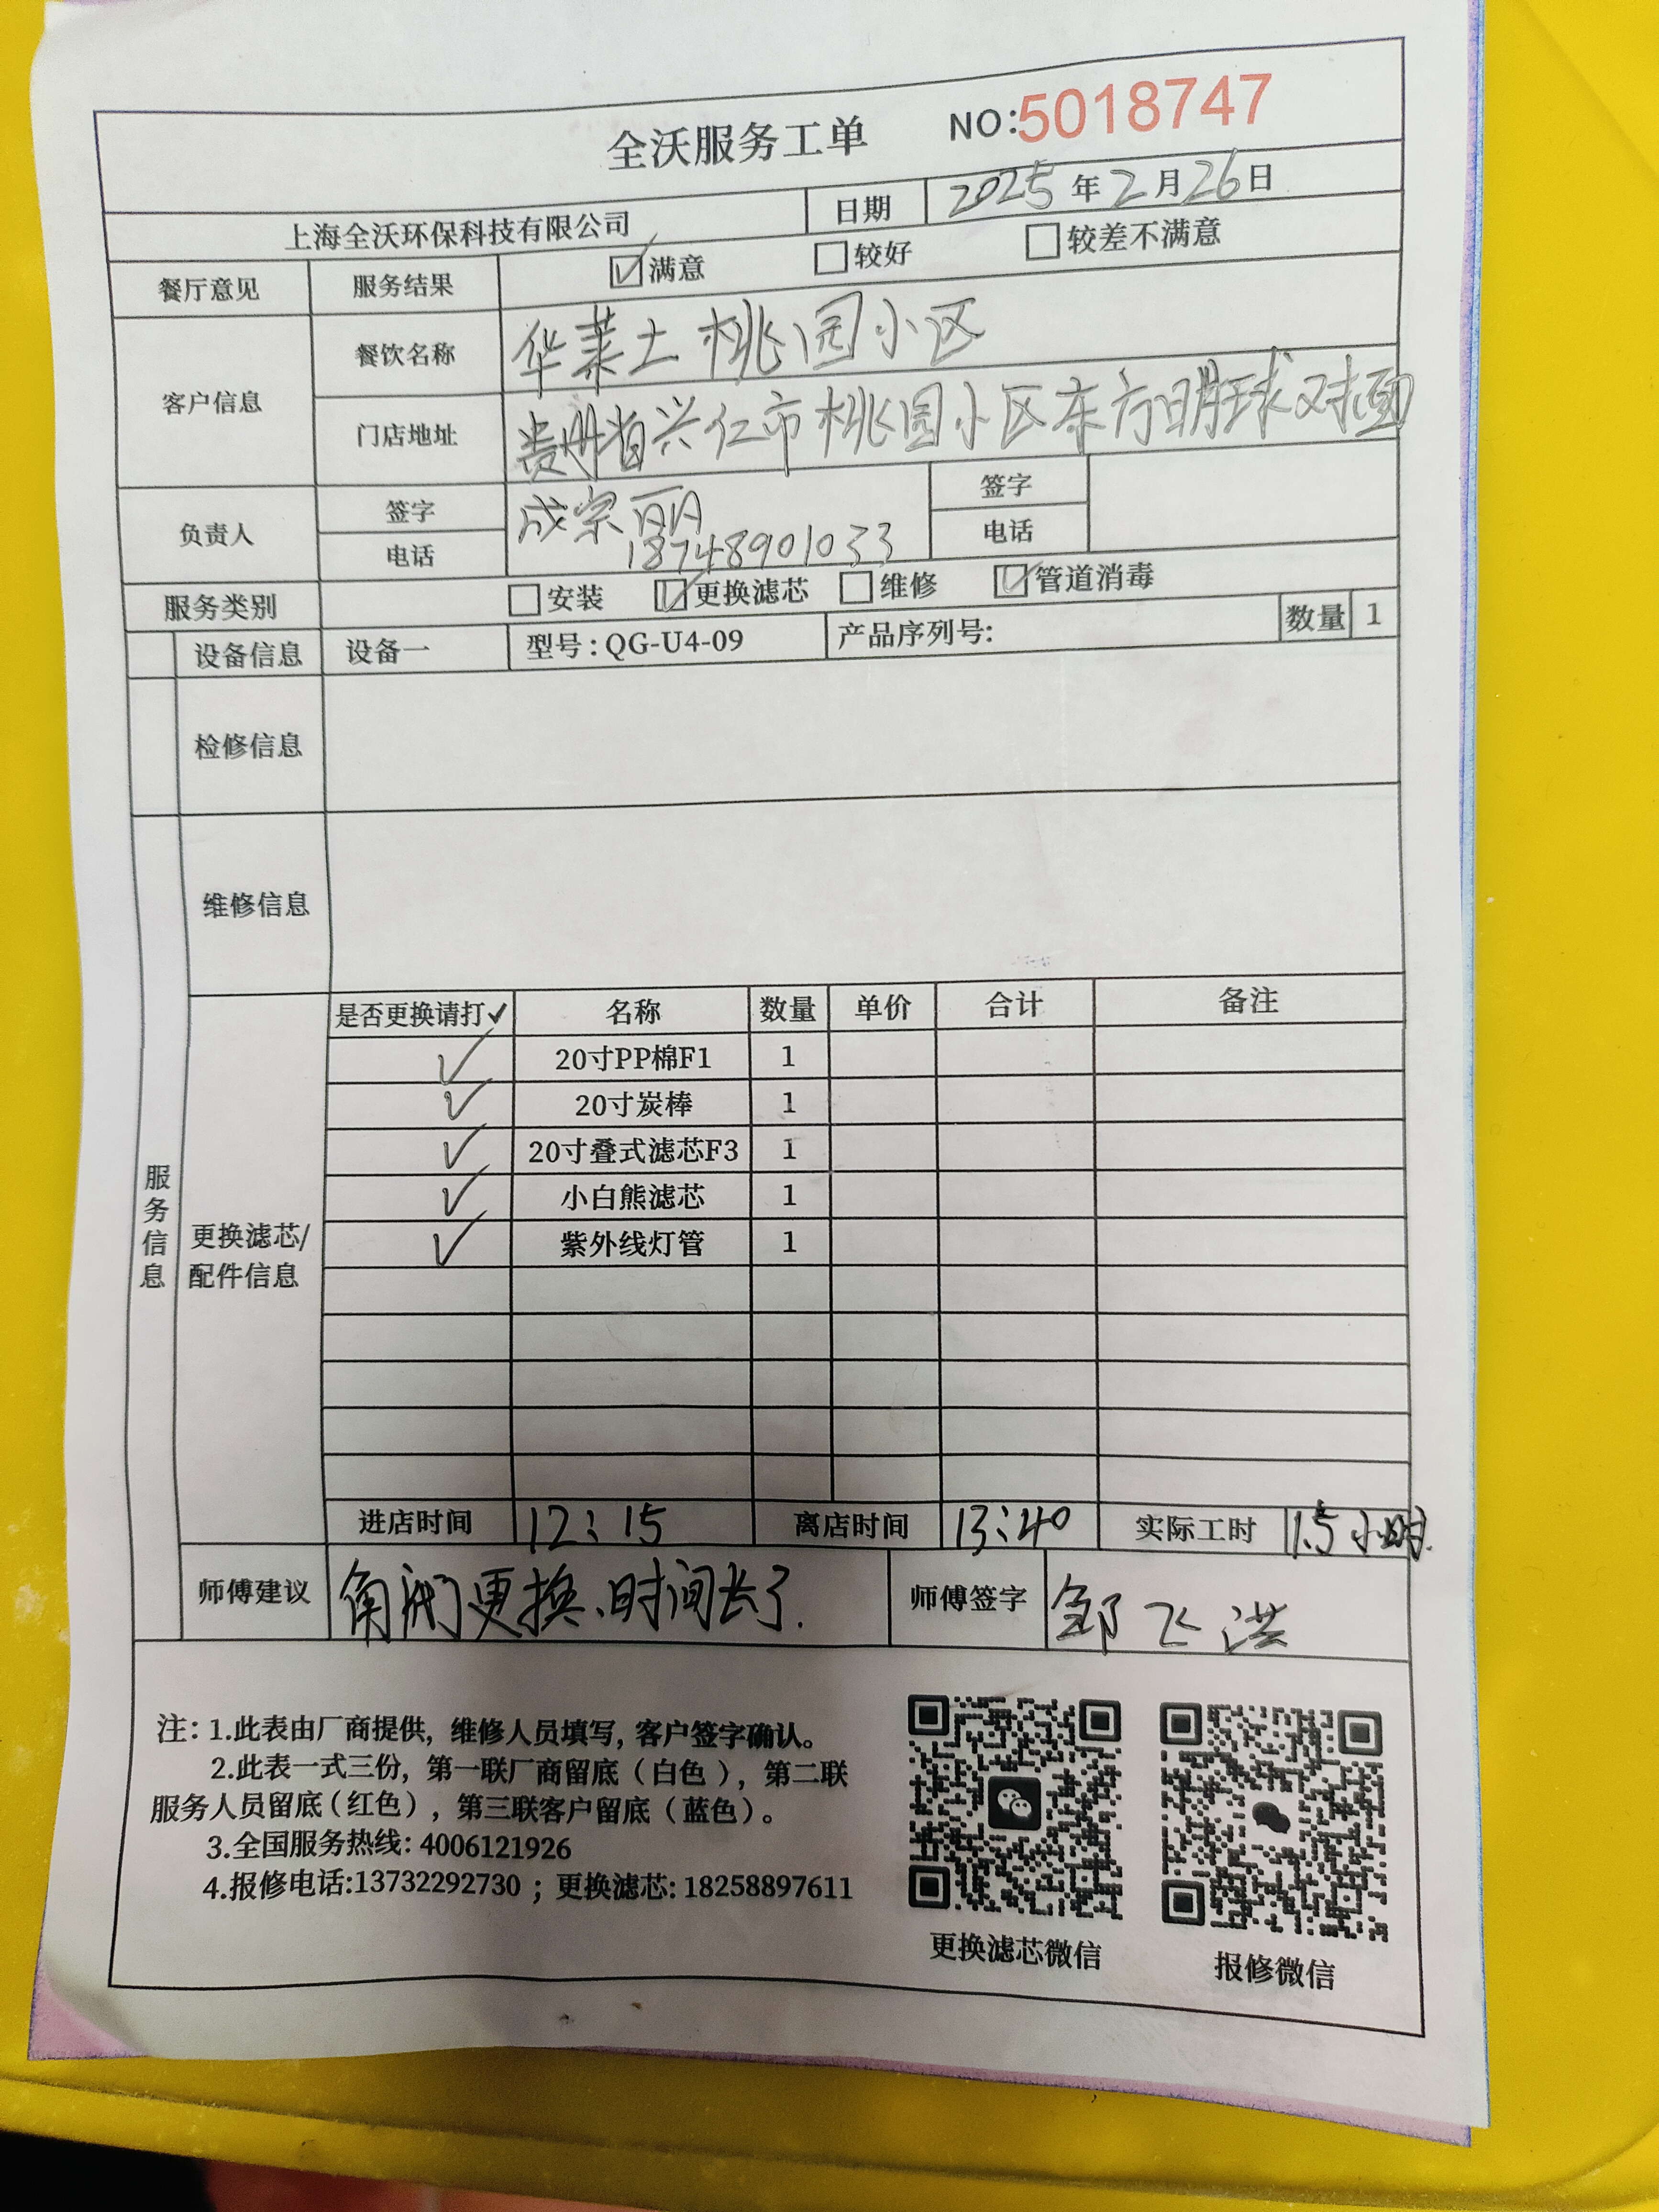 全沃服务工单 NO:5018747
上海全沃环保科技有限公司 日期 2025年2月26日
餐厅意见 服务结果 满意 较好 较差不满意
客户信息 餐饮名称 华莱士桃园小区
门店地址 贵州省兴仁市桃园小区东方明球对面
负责人 签字 成宗丽 签字
电话 18748901033 电话
服务类别 安装 更换滤芯 维修 管道消毒
设备信息 设备一 型号:QG-U4-09 产品序列号: 数量 1
检修信息
维修信息
服务信息
更换滤芯/
配件信息
是否更换请打✓ 名称 数量 单价 合计 备注
✓ 20寸PP棉F1 1
✓ 20寸炭棒 1
✓ 20寸叠式滤芯F3 1
✓ 小白熊滤芯 1
✓ 紫外线灯管 1
进店时间 12:15 离店时间 13:40 实际工时 1.5小时.
师傅建议 角阀更换、时间长了. 师傅签字 邹飞洪
注: 1.此表由厂商提供, 维修人员填写, 客户签字确认。
2.此表一式三份, 第一联厂商留底(白色), 第二联
服务人员留底(红色), 第三联客户留底(蓝色)。
3.全国服务热线: 4006121926
4.报修电话:13732292730 ; 更换滤芯: 18258897611
更换滤芯微信 报修微信